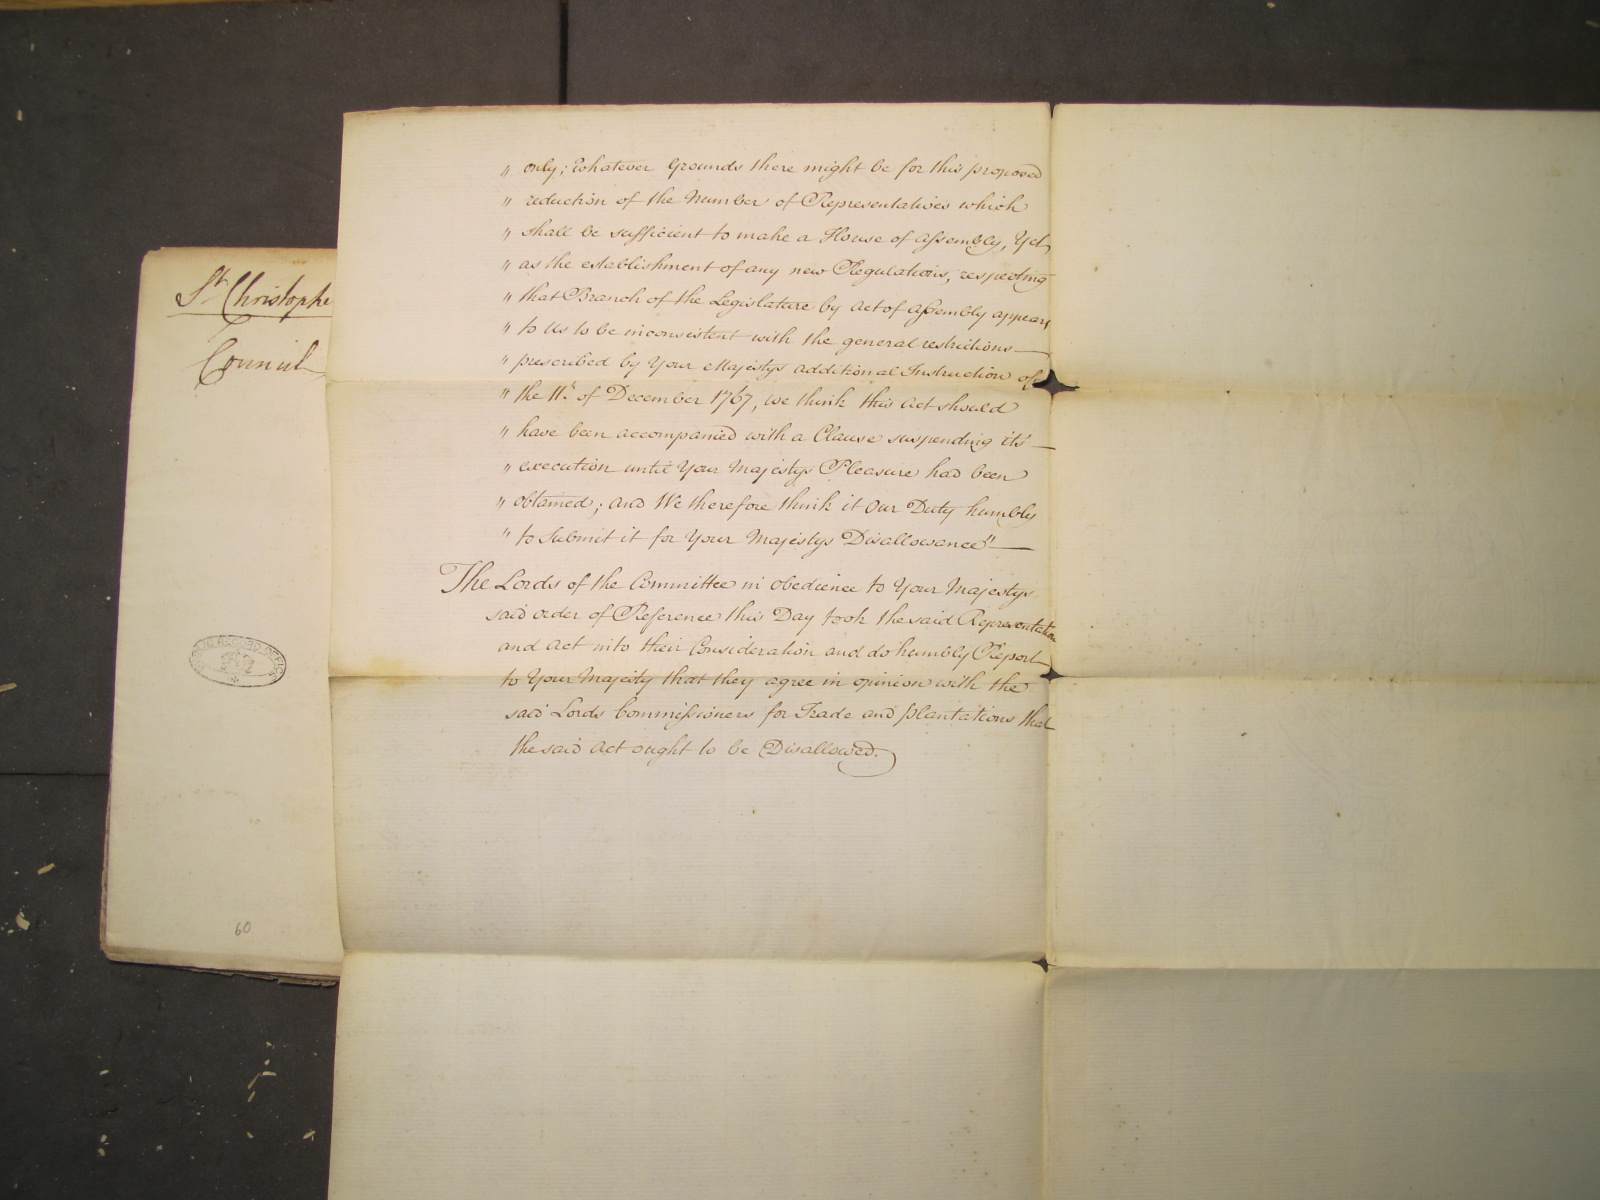 " only; Whatever Grounds there might be for this proposed
" reduction of the Number of Representatives which
" shall be sufficient to make a House of Assembly, Yet,
" as the establishment of any new Regulations, respecting
" that Branch of the Legislature by Act of Assembly appears
" to Us to be inconsistent with the general restrictions
" prescribed by Your Majestys additional Instruction of
" the 11th of December 1767, we think this Act should
" have been accompanied with a Clause suspending its
" execution until Your Majestys Pleasure had been
" obtained; and We therefore think it Our Duty humbly
" to Submit it for Your Majestys Disallowance"
The Lords of the Committee in obedience to Your Majestys
said order of Reference this Day took the said Representation
and Act into their Consideration and do humbly Report
to Your Majesty that they agree in opinion with the
said Lords Commissioners for Trade and Plantations that
the said Act ought to be Disallowed.
St Christophe
Council
PUBLIC RECORD OFFICE
60